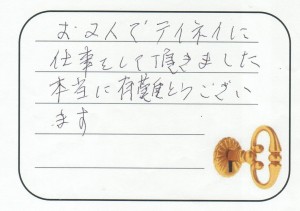 お2人でテイネイに
仕事をして頂きました
本当に有難とうござい
ます